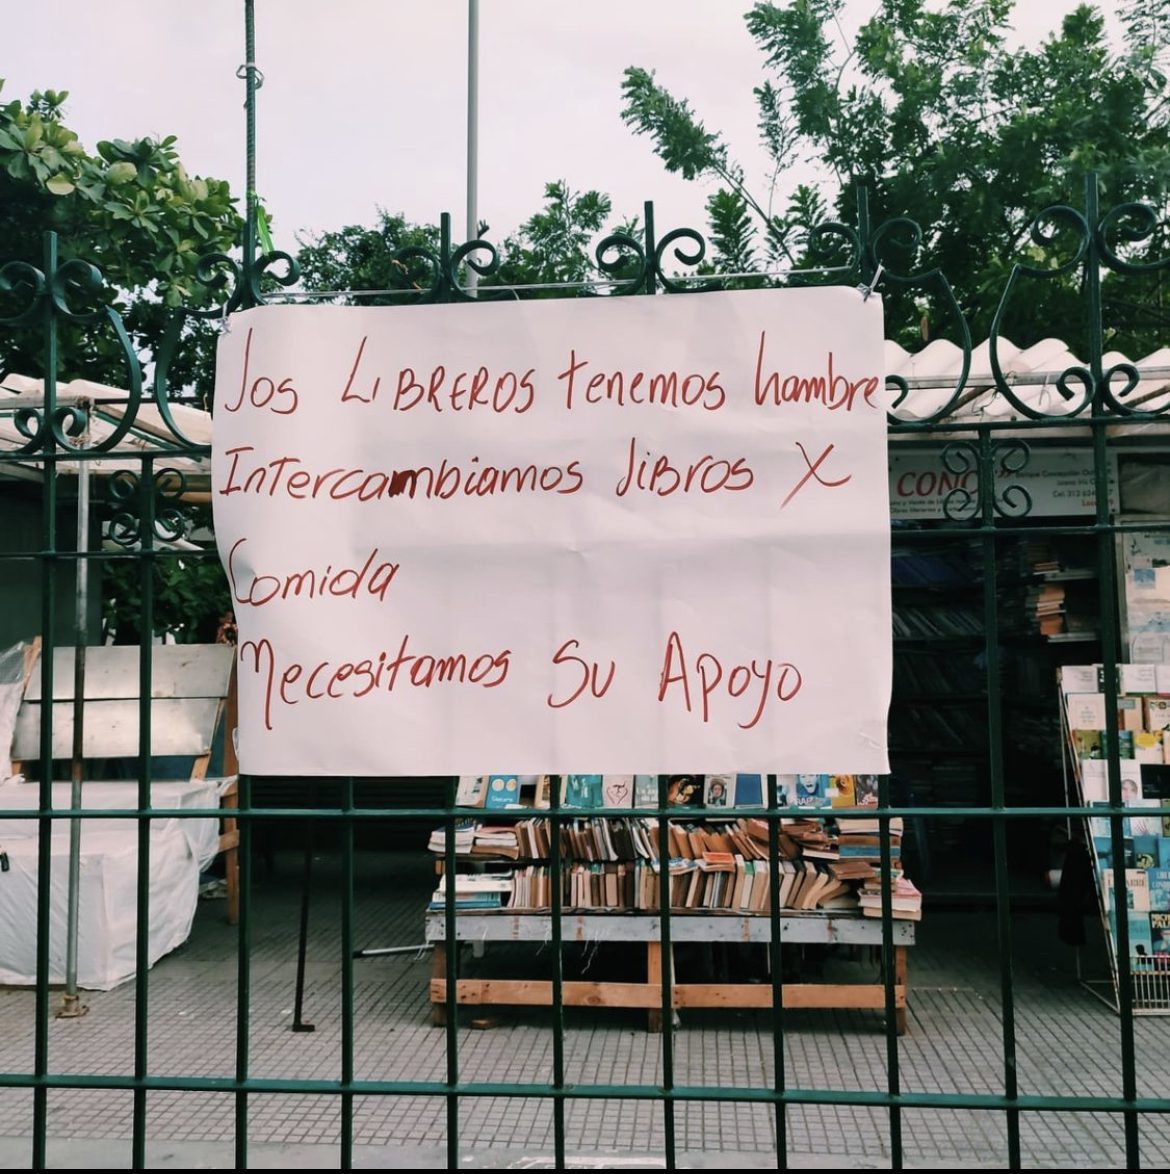 Los LIBREROS tenemos hambre
Intercambiamos libros X
Comida
Necesitamos Su Apoyo
CONC